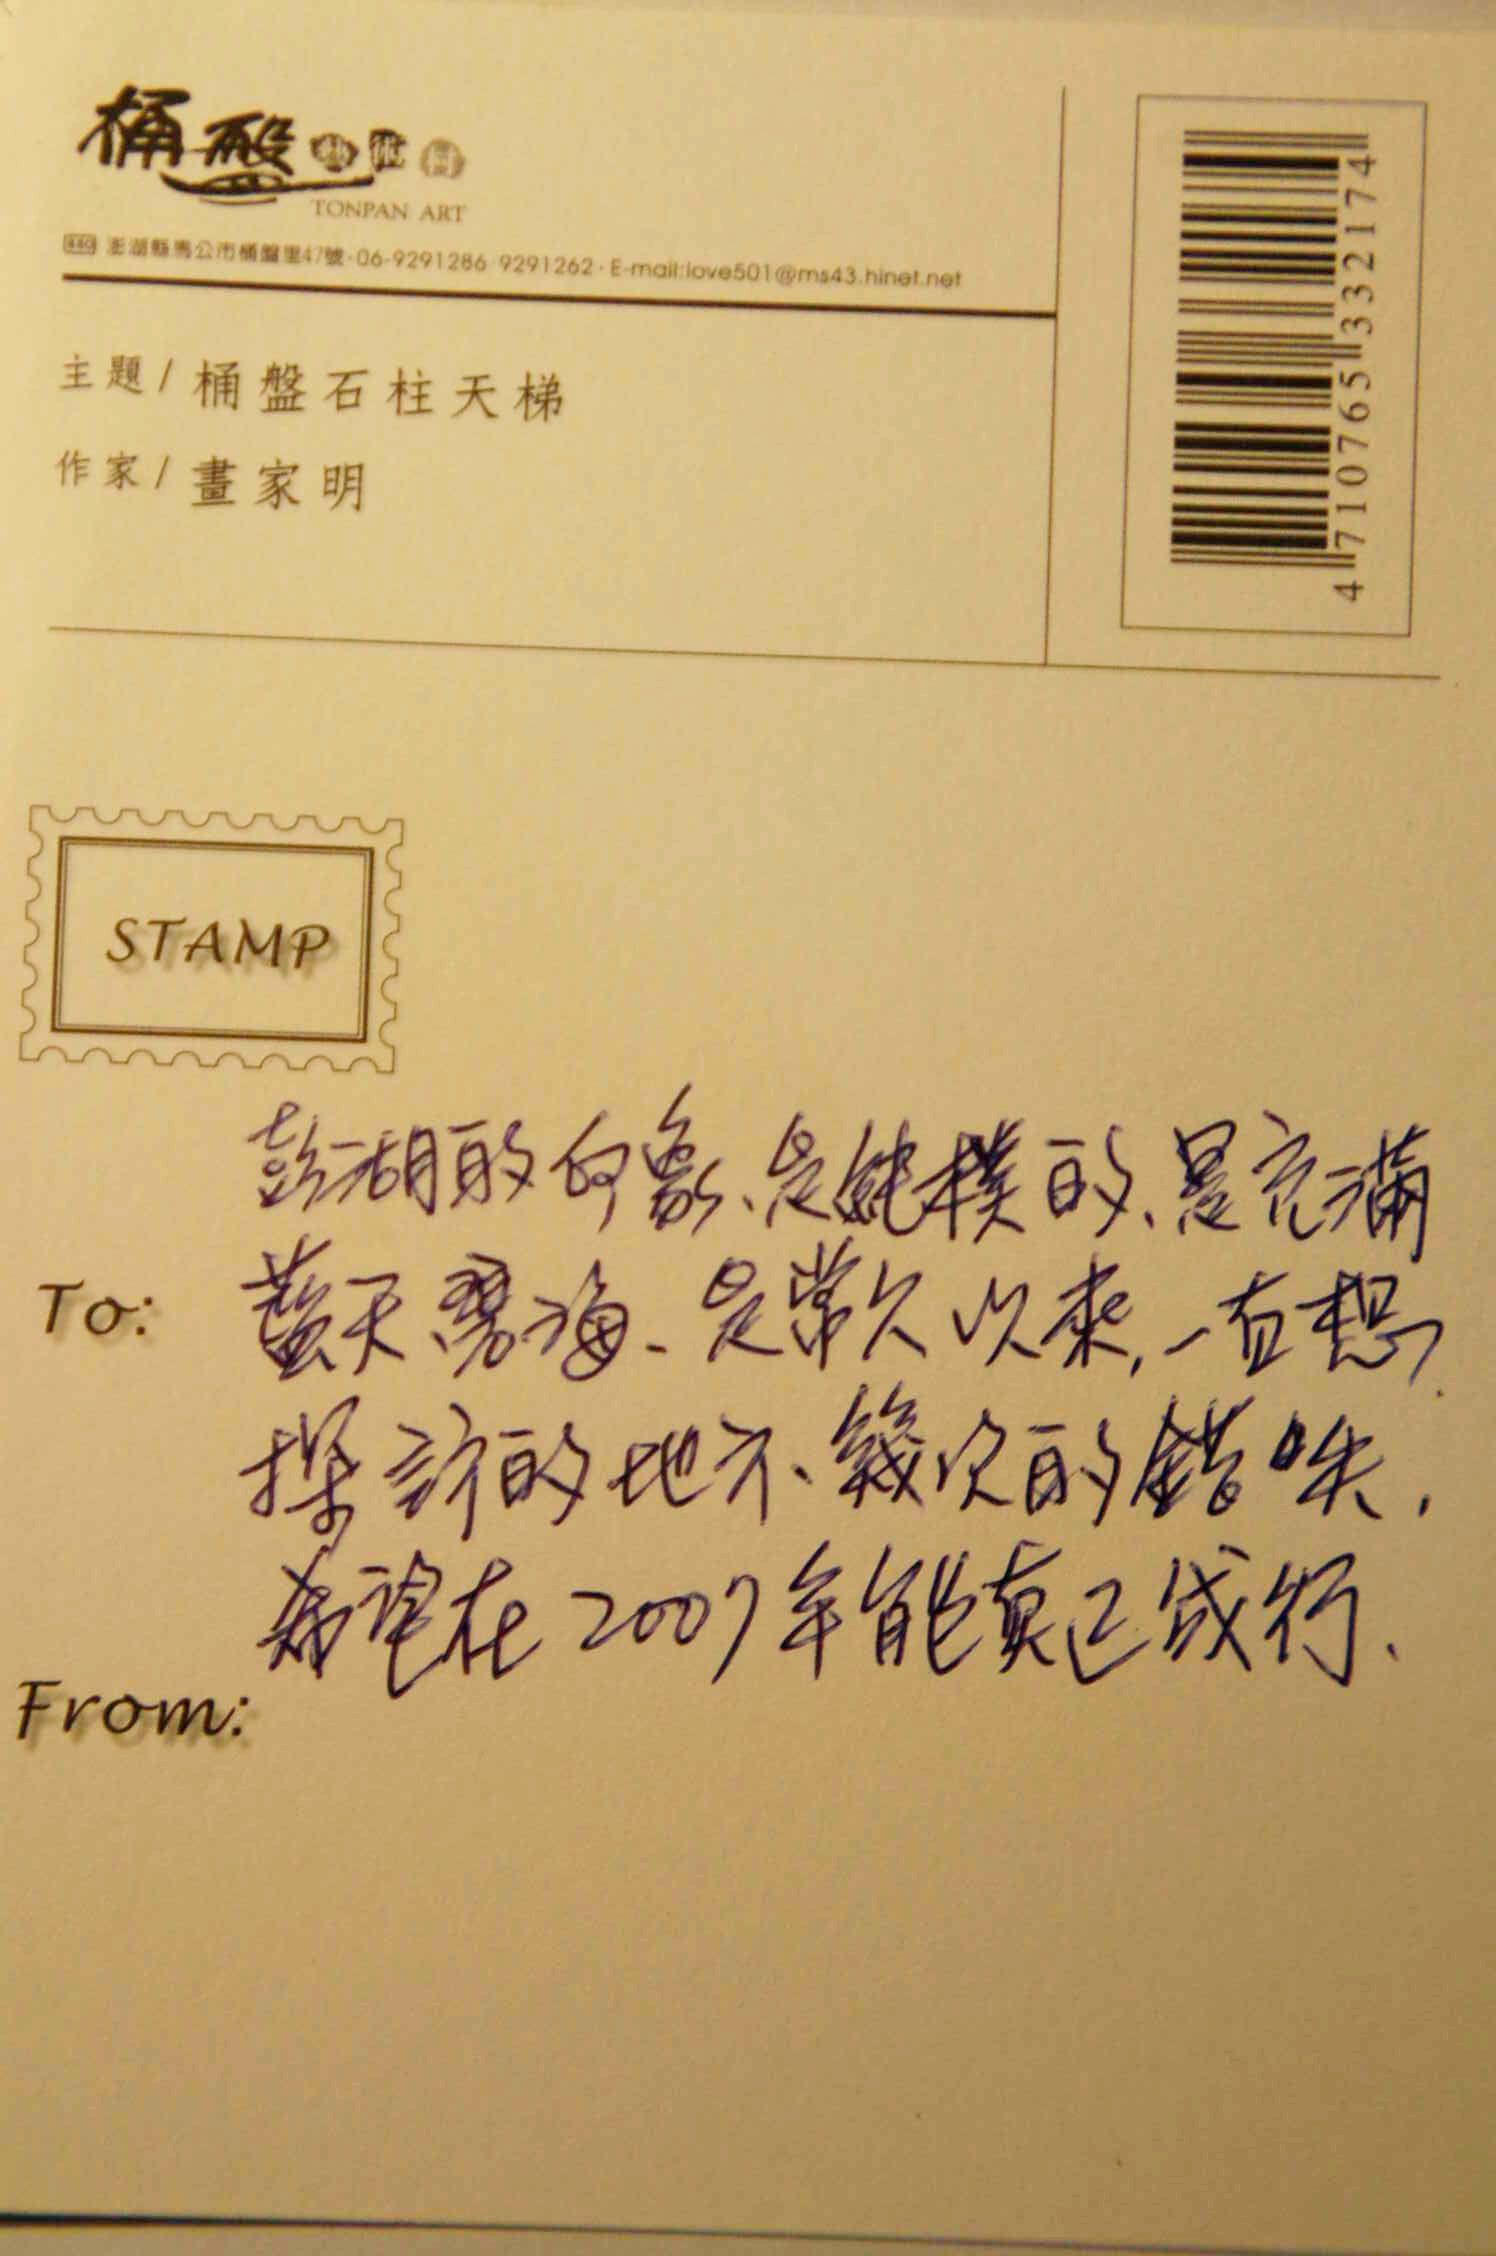 桶盤藝術村
TONPAN ART
880 澎湖縣馬公市桶盤里47號·06-9291286 9291262·E-mail:love501@ms43.hinet.net
主題/桶盤石柱天梯
作家/畫家明
4710765332174
STAMP
澎湖的印象、是純樸的、是充滿
To:
藍天碧海、是常久以來,一直想
探訪的地方、幾次的錯失,
希望在2007年能真正成行、
From: